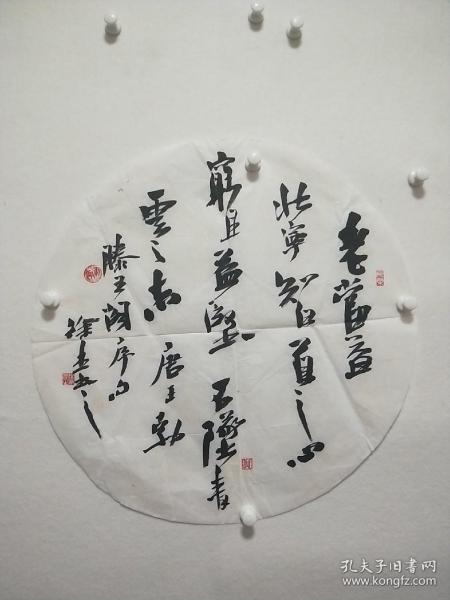 老當益
壮寧知白首之心
窮且益堅不墜青
雲之志 唐王勃
滕王阁序句
徐
孔夫子旧书网
www.kongfz.com